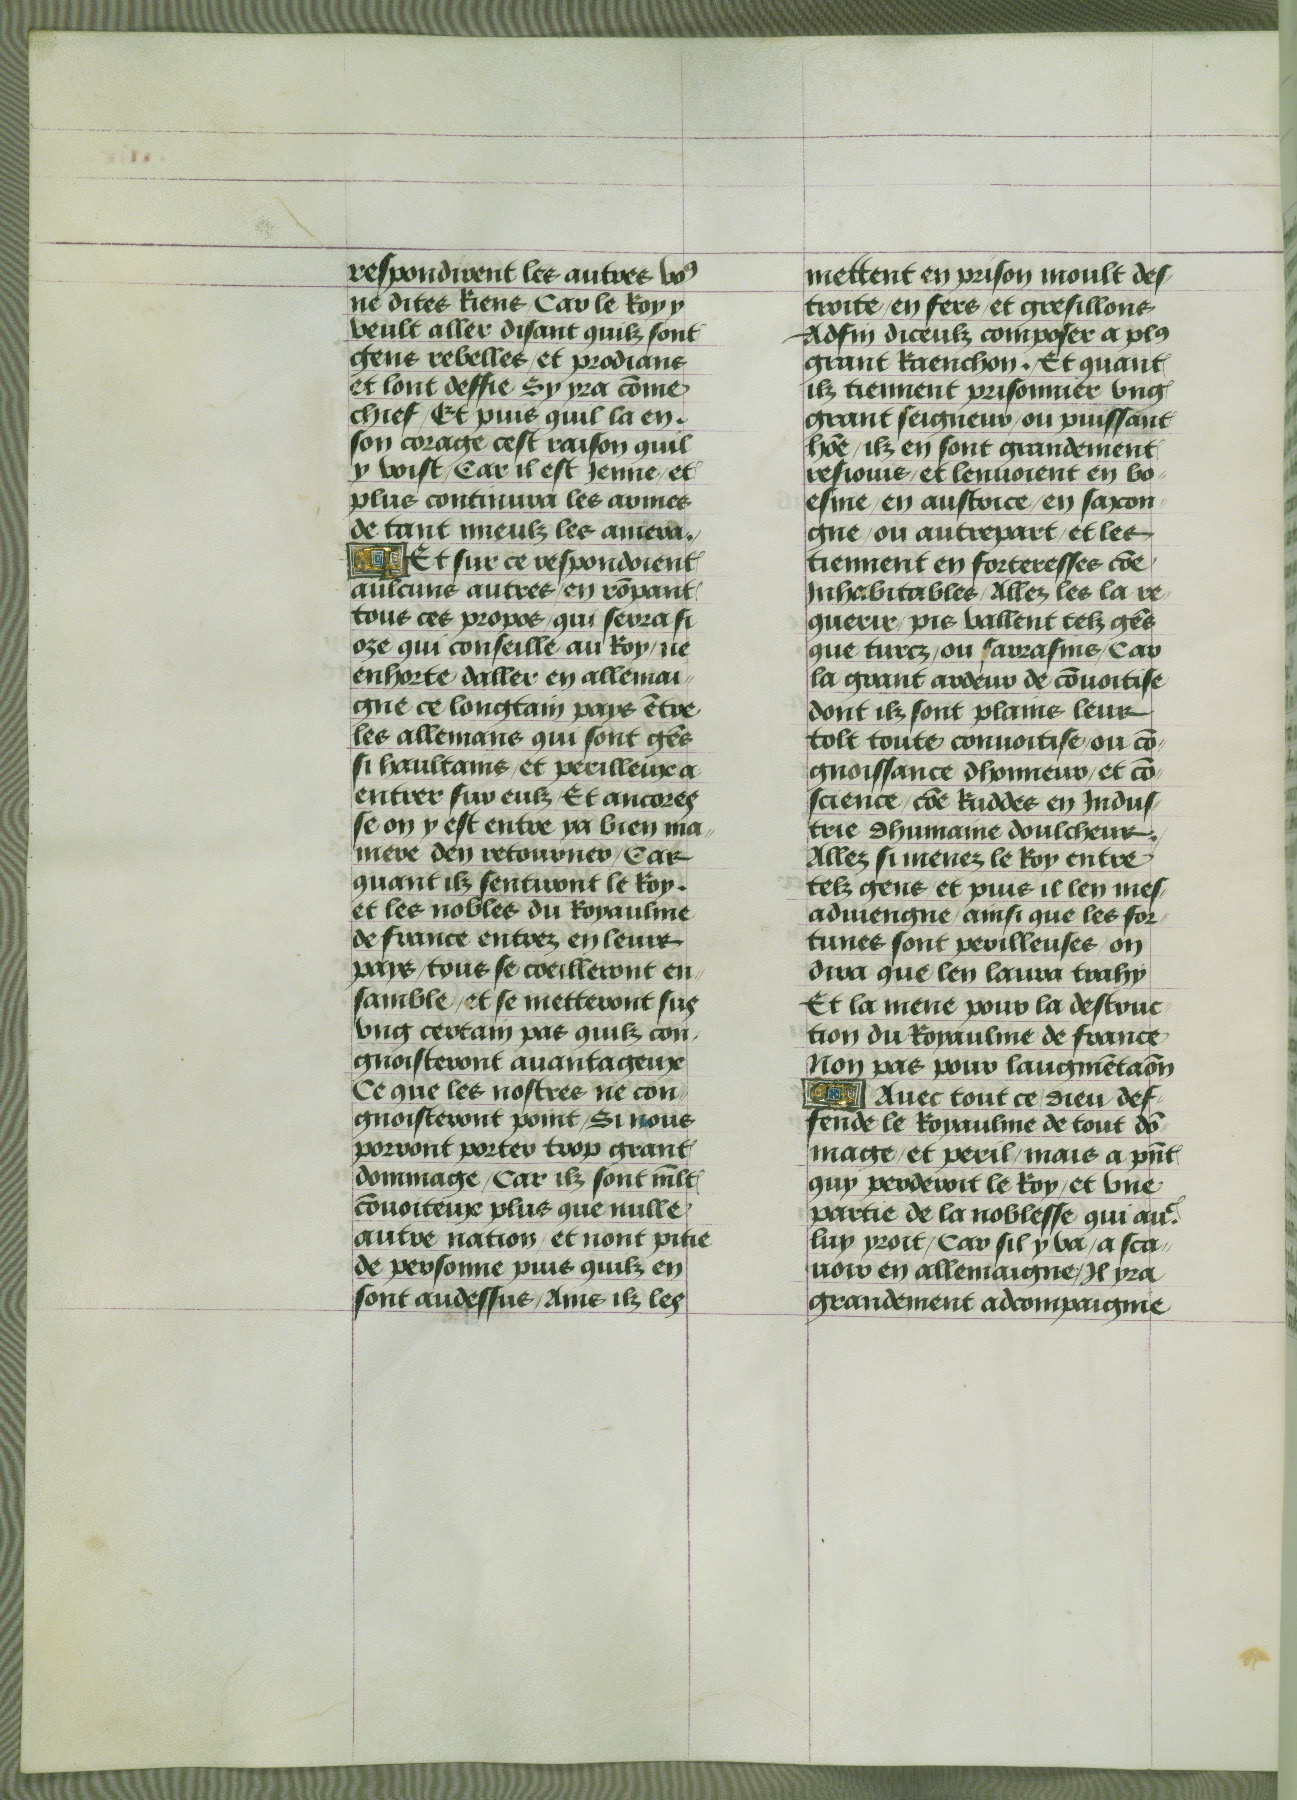 respondirent les autres vo9
ne dites Riens / Car le Roy y
veult aller disant quilz sont
gens rebelles / et prodians
et lont deffie Sy yra cōme
chief / Et puis quil la en.
son corage cest raison quil
y voist / Car il est Jenne / et
plus continura les armes
de tant mieulz les amera.
Et sur ce respondoient
aulcuns autres / en rōpant
tous ces propos / qui serra si
oze qui conseille au Roy / ne
enhorte daller en allemai-
gne ce longtain pays ētre
les allemans qui sont gēs
si haultains / et perilleux a
entrer sur eulz / Et ancores
se on y est entre ya bien ma-
niere den retourner / Car
quant ilz sentiront le Roy.
et les nobles du Royaulme
de france entrez en leurs
pays / tous se coeilleront en-
samble / et se metteront sus
vng certain pas quilz con-
gnoisteront auantageux
Ce que les nostres ne con-
gnoisteront point / Si nous
porront porter trop grant
dommage / Car ilz sont mlt
cōuoiteux plus que nulle
autre nation / et nont pitie
de personne puis quilz en
sont audessus / Ains ilz les
mettent en prison moult des-
troite / en fers / et gresillons
Adfin diceulz composer a pl9
grant Raenchon. / Et quant
ilz tiennent prisonnier vng
grant seigneur / ou puissant
hōe / ilz en sont grandement
resiouis / et lenuoient en bo-
esme / en austrice / en saxon-
gne / ou autrepart / et les
tiennent en forteresses cōe
Inhabitables / Allez les la re-
querir / pis vallent telz gēs
que turcz / ou sarrasins / Car
la grant ardeur de cōuoitise
dont ilz sont plains leur
tolt toute conuoitise / ou cō-
gnoissance dhonneur / et cō-
science / cōe Ruddes en Indus-
trie dhumaine doulcheur.
Allez si menez le Roy entre
telz gens et puis il len mes-
aduiengne / ainsi que les for-
tunes sont perilleuses / on
dira que len laura trahy
Et la mene pour la destruc-
tion du Royaulme de france
Non pas pour laugmētaōn
Auec tout ce / dieu / def-
fende le Royaulme de tout dō-
mage / et peril / mais a pn̄t
quy perderoit le Roy / et vne
partie de la noblesse qui auc
luy yroit / Car sil y va / a sca-
uoir en allemaigne / Il yra
grandement adcompaignie